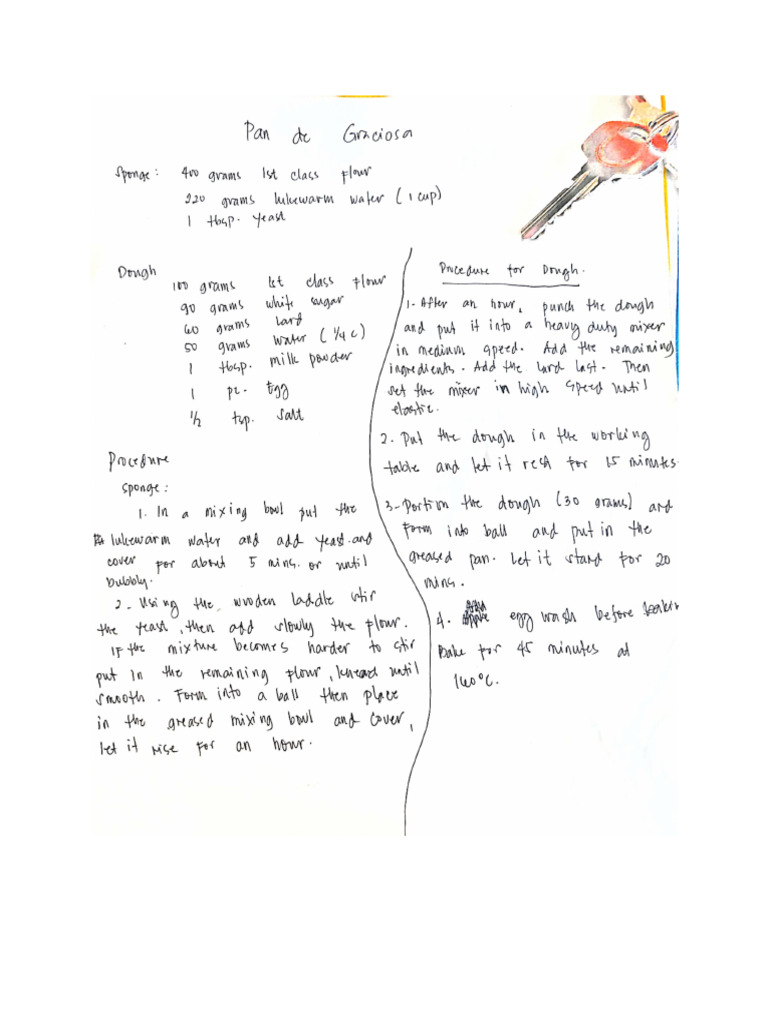 Pan de Graciosa
Sponge: 400 grams 1st class flour
220 grams lukewarm water (1 cup)
1 tbsp. yeast
Dough
100 grams 1st class flour
90 grams white sugar
60 grams lard
50 grams water (1/4 c)
1 tbsp. milk powder
1 pc. Egg
1/2 tsp. salt
Procedure
Sponge:
1. In a mixing bowl put the
lukewarm water and add yeast and
cover for about 5 mins. or until
bubbly.
2. Using the wooden laddle stir
the yeast, then add slowly the flour.
If the mixture becomes harder to stir
put in the remaining flour, knead until
smooth. Form into a ball then place
in the greased mixing bowl and cover,
let it rise for an hour.
Procedure for Dough.
1- After an hour, punch the dough
and put it into a heavy duty mixer
in medium speed. Add the remaining
ingredients. Add the lard last. Then
set the mixer in high speed until
elastic.
2. Put the dough in the working
table and let it rest for 15 minutes.
3- Portion the dough (30 grams) and
form into ball and put in the
greased pan. Let it stand for 20
mins.
4. egg wash before bakin
Bake for 45 minutes at
140°C.